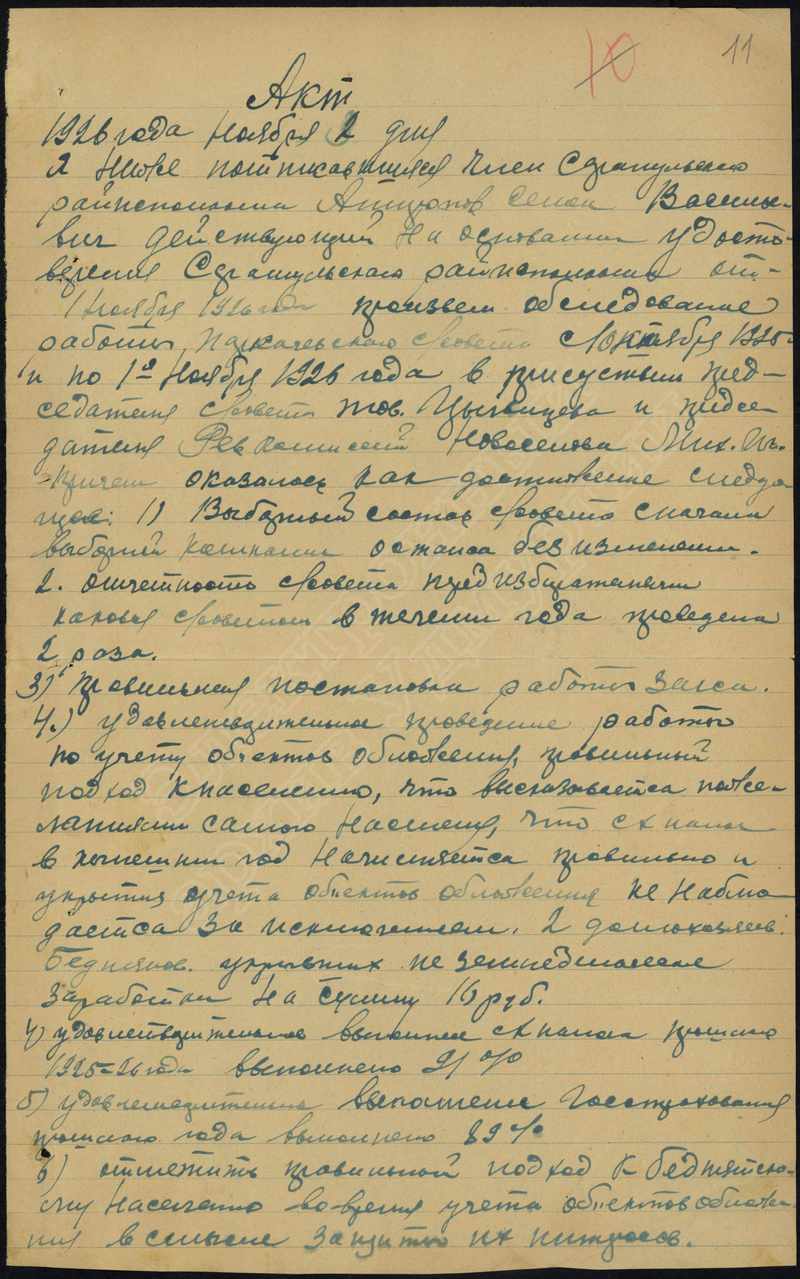 10 11
Акт
1926 года Ноября 2 дня
Я Ниже подписавшийся член
райисполкома Семен Василье-
вич Действующий На основании удосто-
верения райисполкома от
1 Ноября 1926 года произвел обследование
работы Совета с 1 октября 1925
и по 1е Ноября 1926 года в присуствии пред-
седателя Совета тов. и предсе-
дателя Рев комиссии Новоселова Мих. Ив.
причем оказалось как достижение следую
щее: 1) Выборный состав Совета с начала
выборной компании остался без изменении.
2. отчетность Совета пред избирателями
каковая Советом в течении года проведена
2 раза.
3) правильная постановка работы Загса.
4.) удовлетворительное проведение работы
по учету объектов обложения, правильный
подход к населению, что высказывается поже-
ланиями самого Населения, что с/х налог
в нынешнем год Начисляется правильно и
укрытия учета объектов обложения не наблю
дается за исключением. 2 домохозяев.
бедняков. укрывших не земледельческие
заработки на сумму 16 руб.
4) удовлетворительно выполнен с/х налог прошлого
1925-26 года выполнено 91 %
5) удовлетворительно выполнение Госстрахования
прошлого года выполнено 89 %
6) отметить правильной подход к бедняцко-
му населению во время учета объектов обложе-
ния в смысле защиты их интересов.